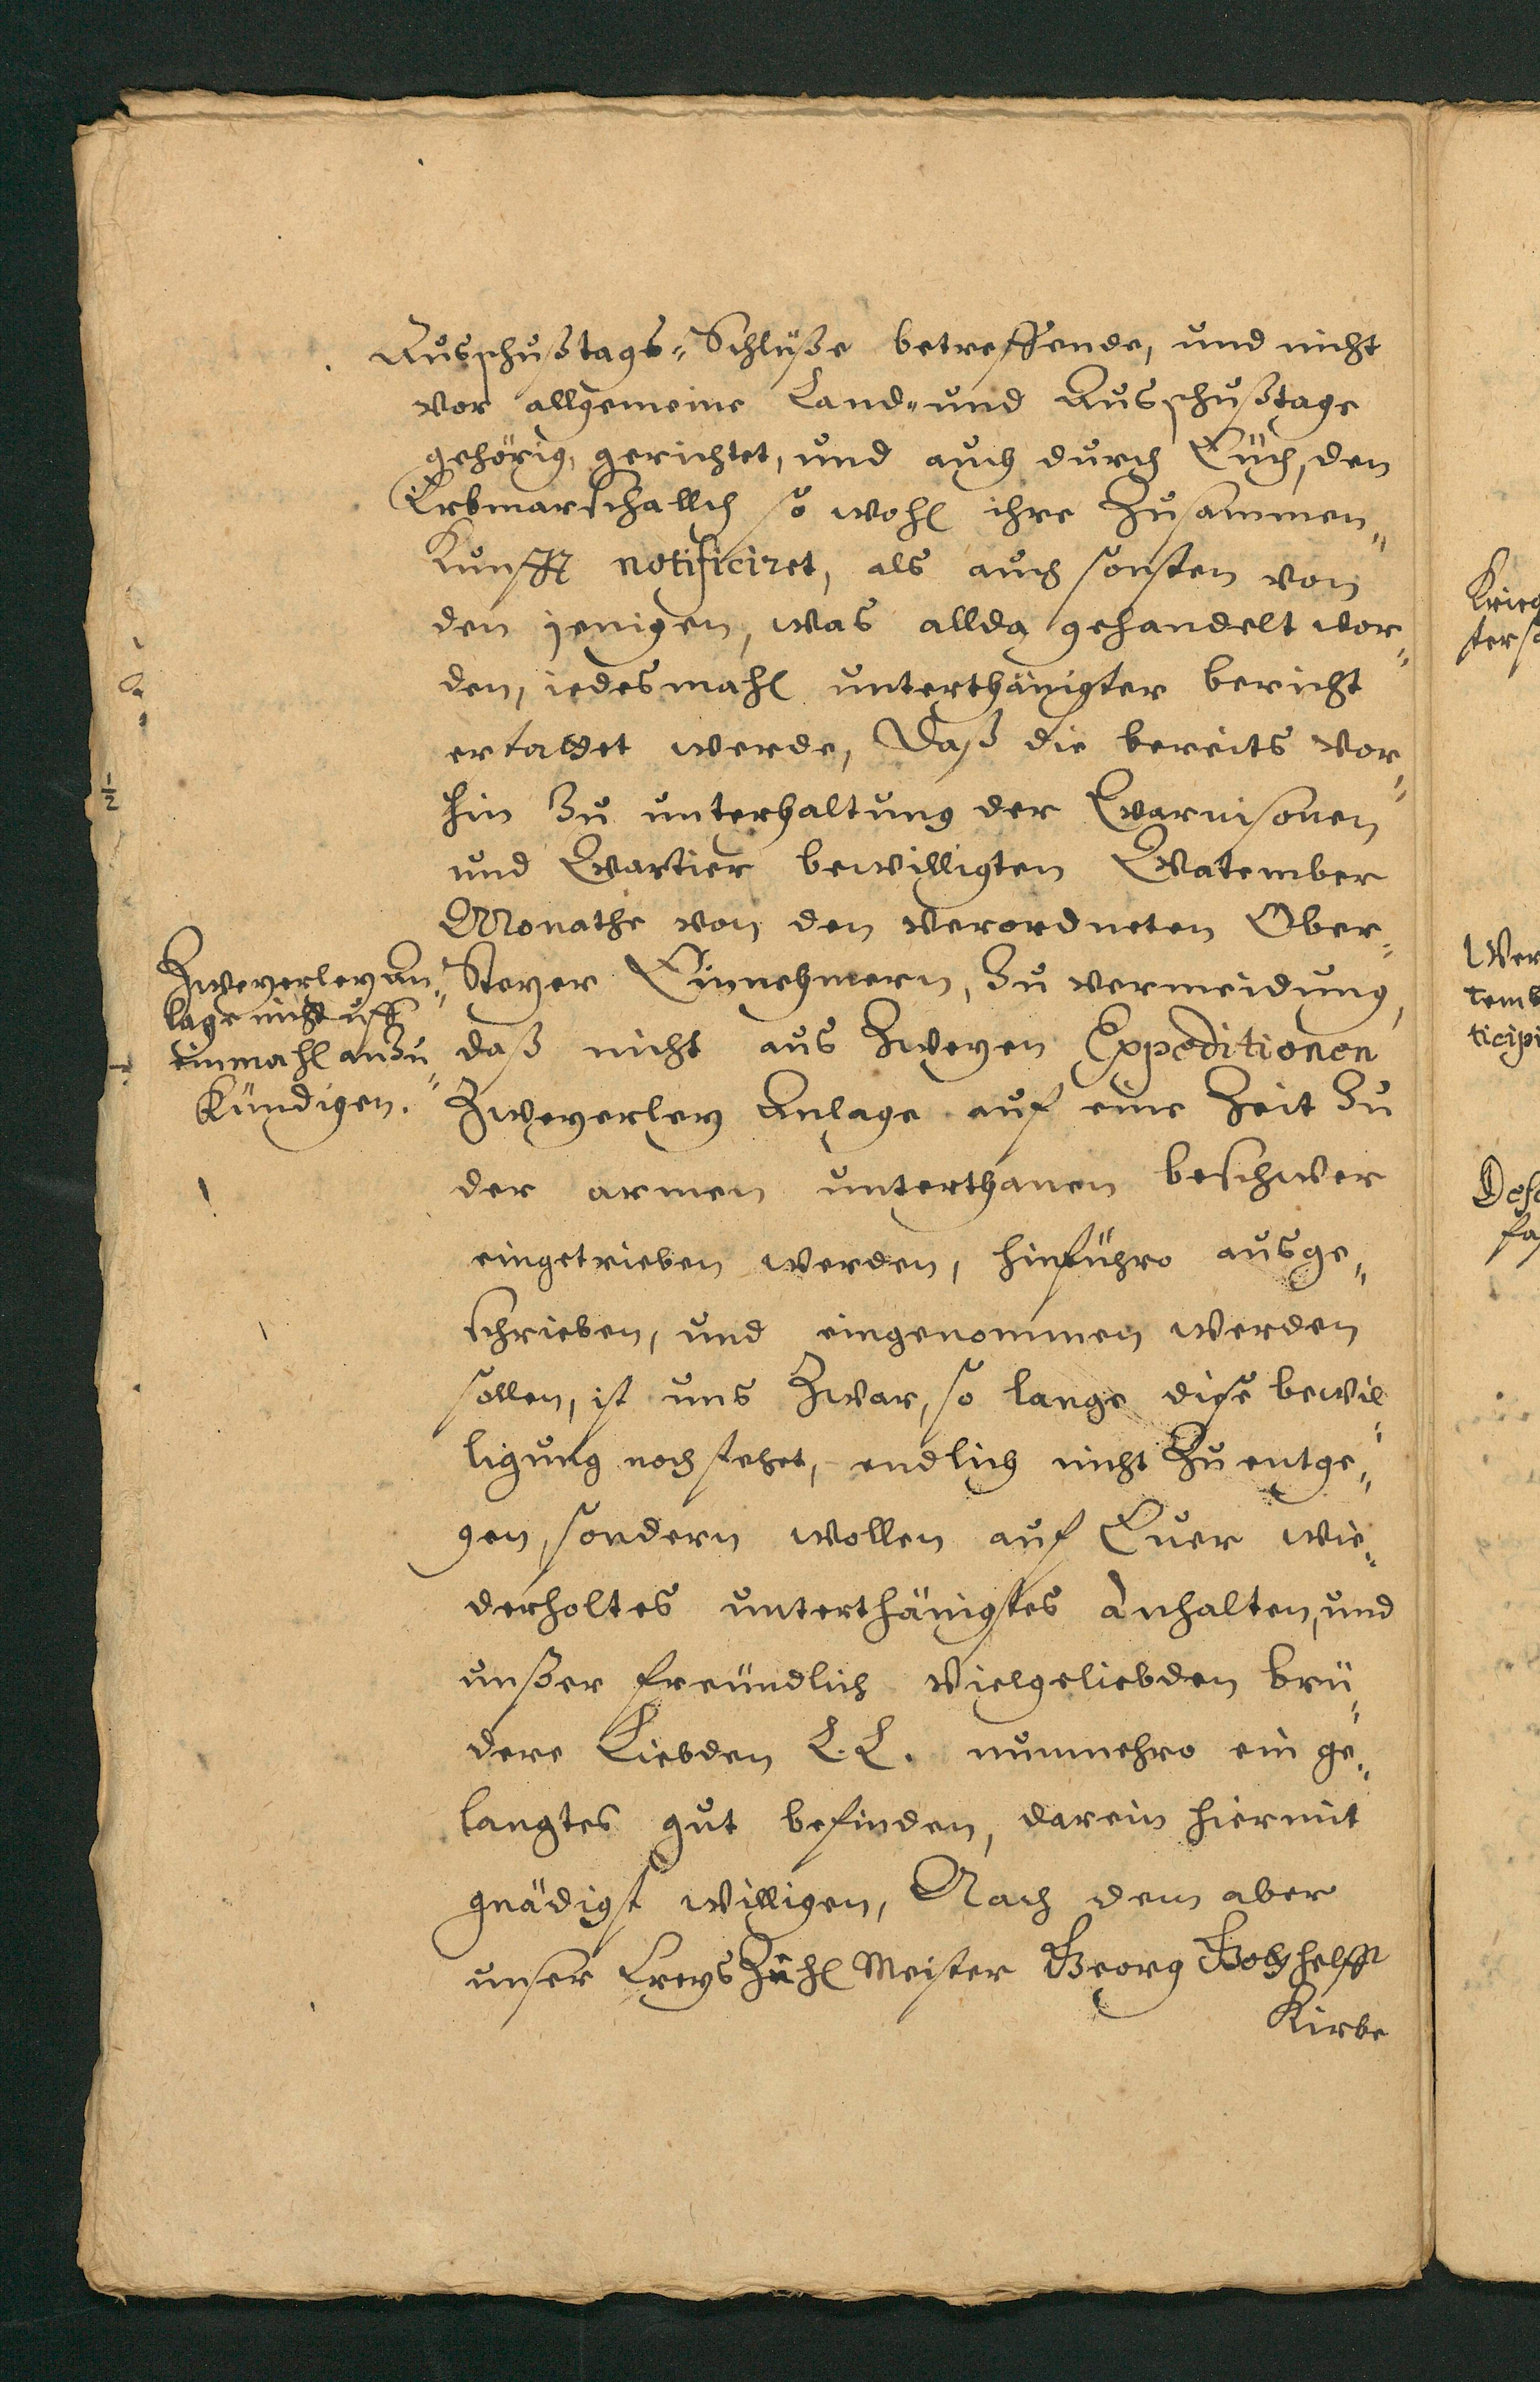 Ausschußtags-Schlüße betreffende, und nicht
vor allgemeine Land- und Ausschußtage
gehörig, gerichtet, und auch durch Euch, den
Erbmarschalln so wohl ihre Zusammen-
kunfft notificiret, als auch sonsten von
den jenigen, was allda gehandelt wor-
den, iedesmahl unterthänigster bericht
erstattet werde, Daß die bereits vor-
hin zu unterhaltung der Gvarnisonen
und Qvartier bewilligten Qvatember
Monathe von den verordneten Ober-
Steyer Einnehmern, zu vermeidung,
daß nicht aus Zweyen Expeditionen
Zweyerley Anlage auf eine Zeit zu
der armen unterthanen beschwer
eingetrieben werden, hinführo ausge-
schrieben, und eingenommen werden
sollen, ist uns Zwar, so lange diese bewil-
ligung noch stehet, endlich nicht Zu entge-
gen, sondern wollen auf Euer wie-
derholtes unterthänigstes Anhalten, und
unßer freundlich vielgeliebden brü-
dere Liebden L. L. nunmehro ein ge-
langtes gut befinden, darein hiermit
gnädigst willigen, Nach dem aber
unser Creys Zahl Meister Georg Gotthelfft
Kirbe
Zweyerley An-
lage nicht uff
einmahl anzu-
kündigen.